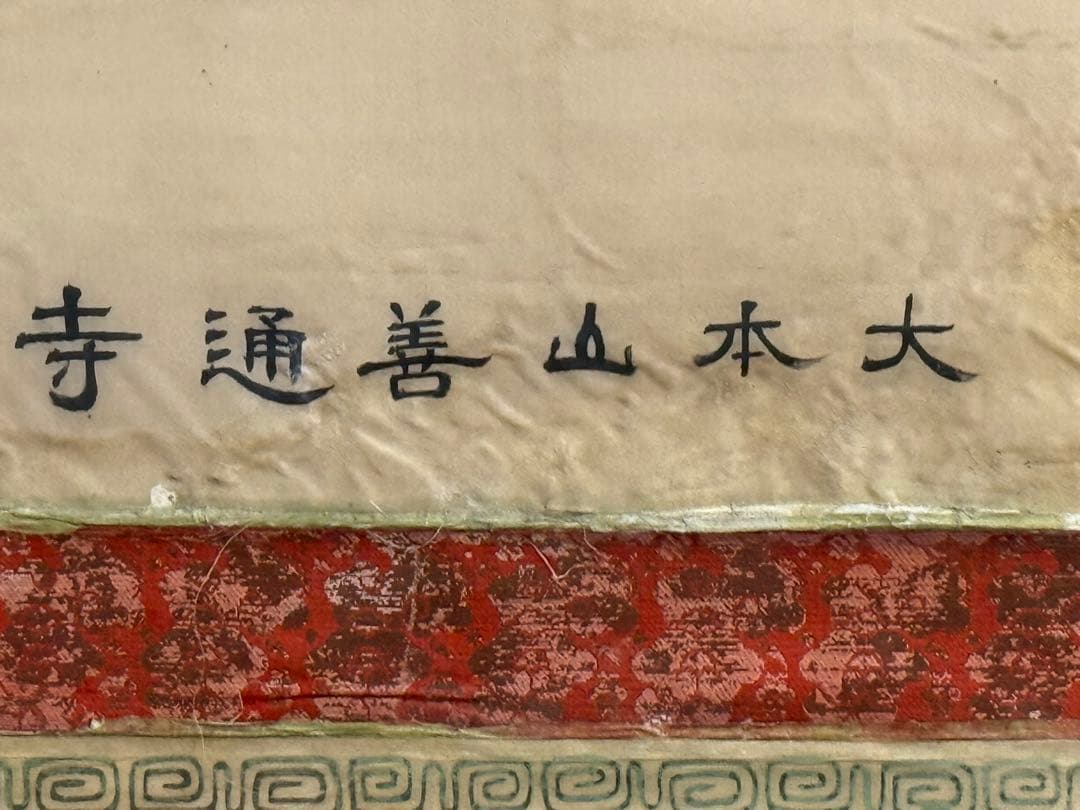 大本山善通寺